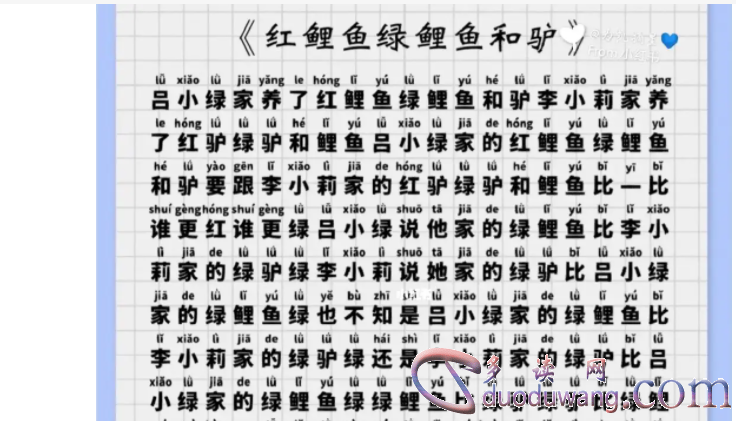 《红鲤鱼绿鲤鱼和驴》
lǚ xiǎo lǜ jiā yǎng le hóng lǐ yú lǜ lǐ yú hé lǘ lǐ xiǎo lì jiā yǎng
吕小绿家养了红鲤鱼绿鲤鱼和驴李小莉家养
le hóng lǘ lǜ lǘ hé lǐ yú lǚ xiǎo lǜ jiā de hóng lǐ yú lǜ lǐ yú
了红驴绿驴和鲤鱼吕小绿家的红鲤鱼绿鲤鱼
hé lǘ yào gēn lǐ xiǎo lì jiā de hóng lǘ lǜ lǘ hé lǐ yú bǐ yī bǐ
和驴要跟李小莉家的红驴绿驴和鲤鱼比一比
shuí gèng hóng shuí gèng lǜ lǚ xiǎo lǜ shuō tā jiā de lǜ lǐ yú bǐ lǐ xiǎo
谁更红谁更绿吕小绿说他家的绿鲤鱼比李小
lì jiā de lǜ lǘ lǜ lǐ xiǎo lì shuō tā jiā de lǜ lǘ bǐ lǚ xiǎo lǜ
莉家的绿驴绿李小莉说她家的绿驴比吕小绿
jiā de lǜ lǐ yú lǜ yě bù zhī lǚ xiǎo lǜ jiā de lǜ lǐ yú bǐ
家的绿鲤鱼绿也不知是吕小绿家的绿鲤鱼比
lǐ xiǎo lì jiā de lǜ lǘ lǜ hái shì jiā de lǜ lǘ bǐ lǚ
李小莉家的绿驴绿还是莉家的绿驴比吕
xiǎo lǜ jiā de lǜ lǐ yú lǜ lǜ lǐ yú
小绿家的绿鲤鱼绿绿鲤鱼
多读网
duoduwang.com